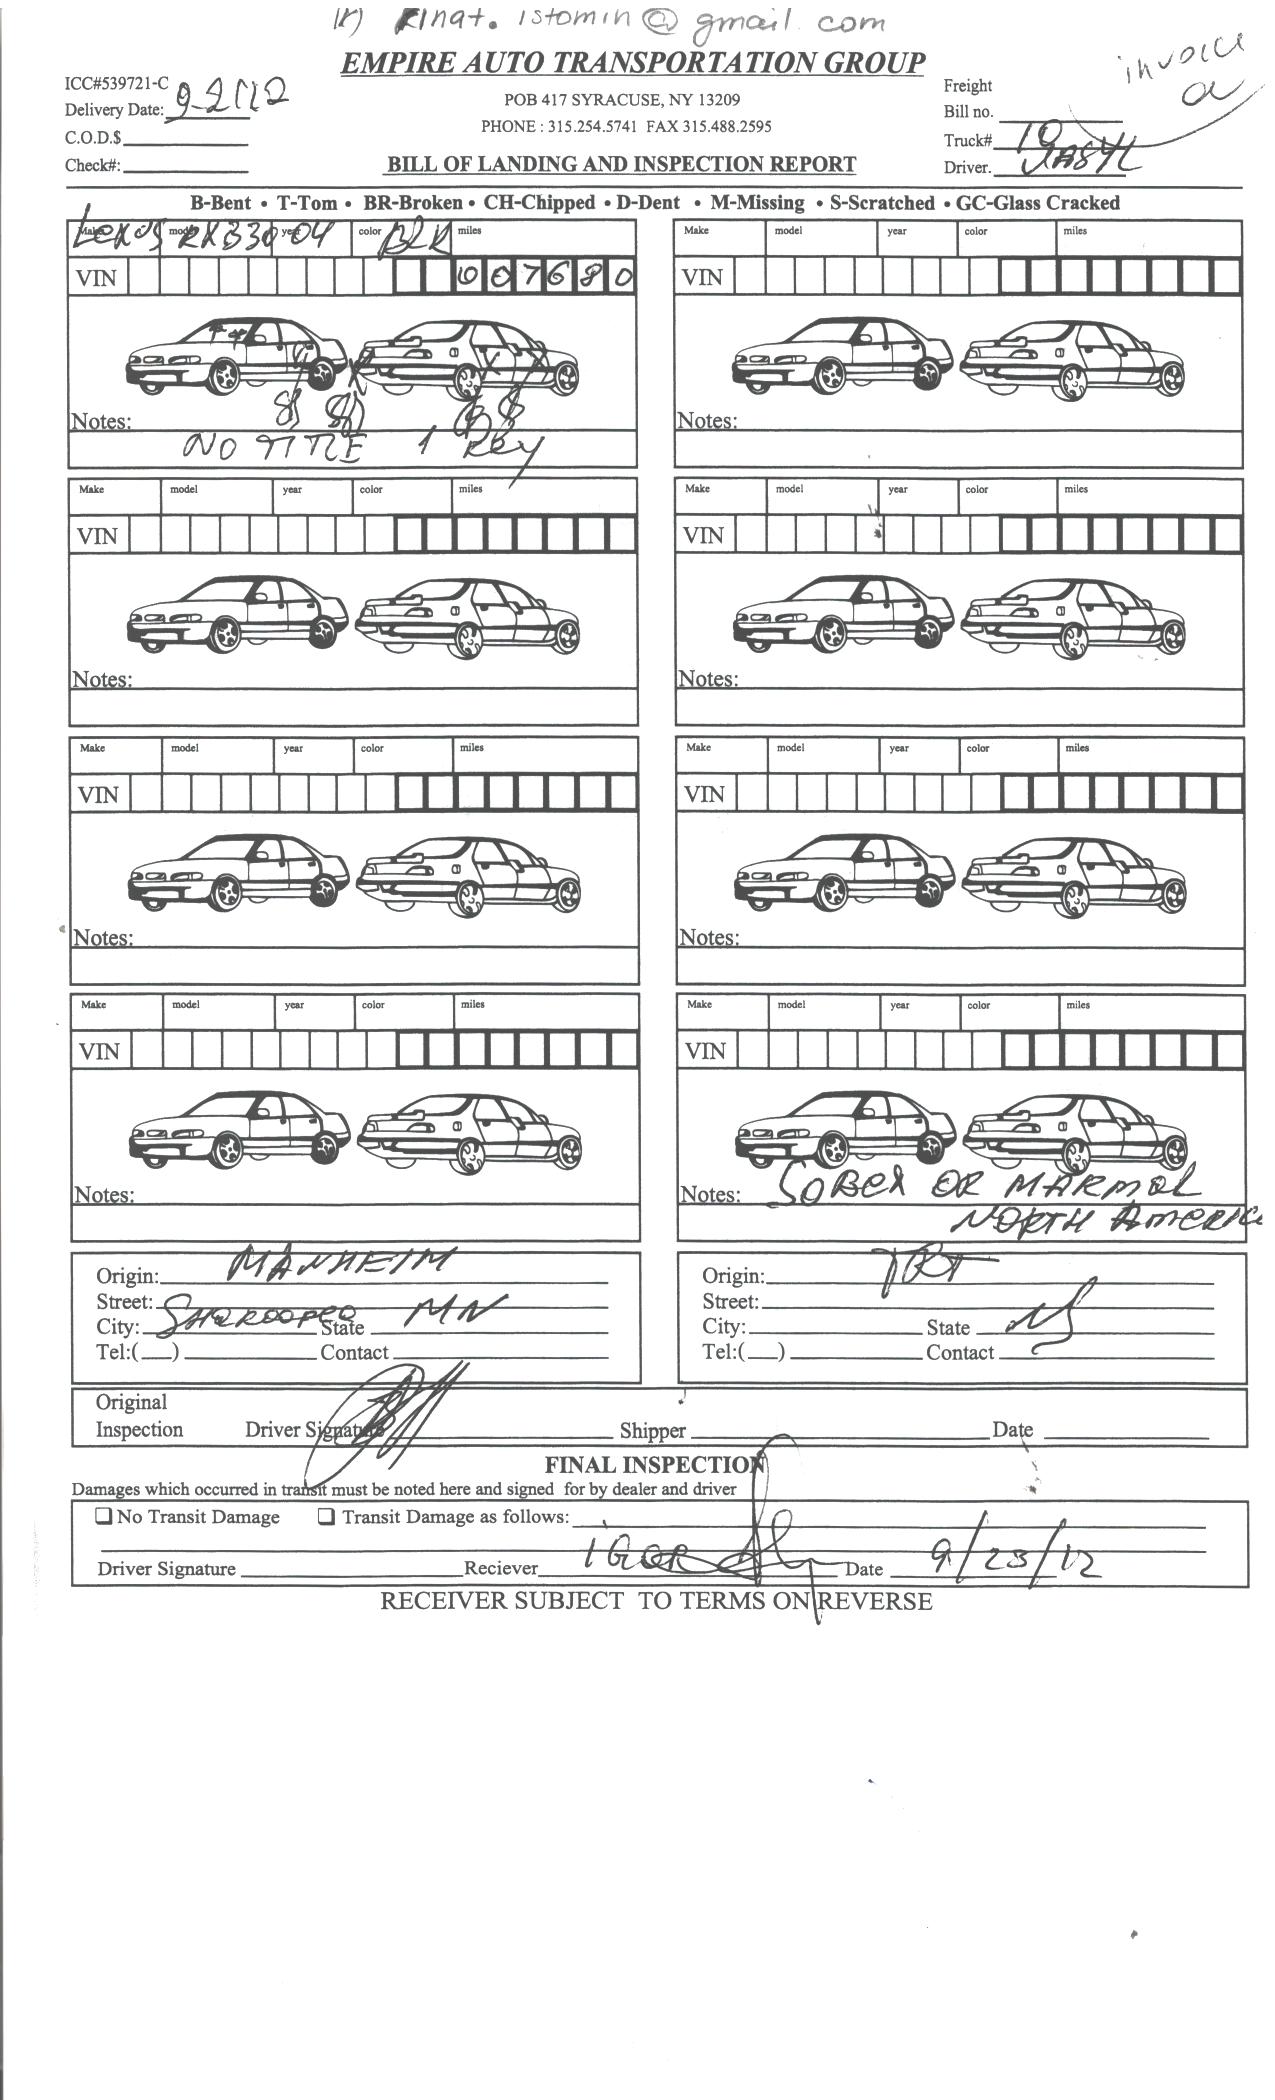 rinat.istomin@gmail.com
EMPIRE AUTO TRANSPORTATION GROUP
invoice
ICC#539721-C
Freight
POB 417 SYRACUSE, NY 13209
Delivery Date: 9-21-12
Bill no.
PHONE : 315.254.5741 FAX 315.488.2595
C.O.D.$
Truck# 10
Check#:
BILL OF LANDING AND INSPECTION REPORT
Driver. VASYL
B-Bent • T-Tom • BR-Broken • CH-Chipped • D-Dent • M-Missing • S-Scratched • GC-Glass Cracked
Make model year color miles
Lexus RX330 04 BLK
VIN 007680
Notes:
NO TITLE 1 Key
Make model year color miles
VIN
Notes:
Make model year color miles
VIN
Notes:
Make model year color miles
VIN
Notes:
Make model year color miles
VIN
Notes:
Make model year color miles
VIN
Notes:
Make model year color miles
VIN
Notes:
Make model year color miles
VIN
Notes: OR MARMOL
NORTH AMERICA
Origin: MANHEIM
Street:
City: State MN
Tel:( ) Contact
Origin: TRT
Street:
City: State NJ
Tel:( ) Contact
Original
Inspection Driver Signature Shipper Date
FINAL INSPECTION
Damages which occurred in transit must be noted here and signed for by dealer and driver
No Transit Damage Transit Damage as follows:
Driver Signature Reciever IGOR Date 9/23/12
RECEIVER SUBJECT TO TERMS ON REVERSE